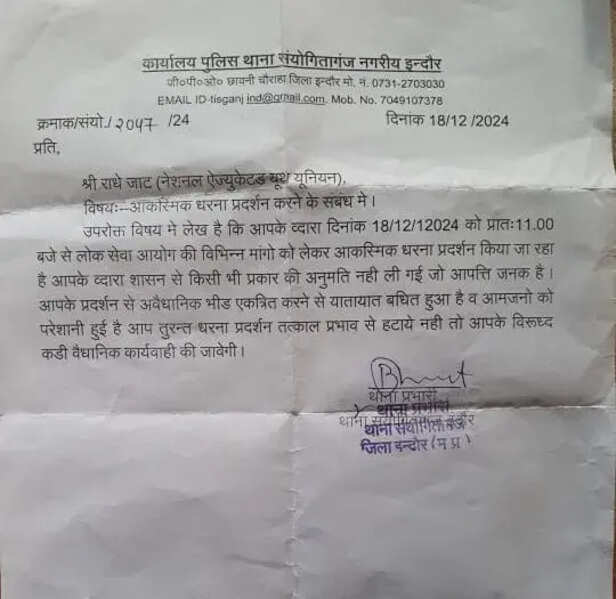 कार्यालय पुलिस थाना संयोगितागंज नगरीय इन्दौर
पी०पी०ओ० छावनी चौराहा जिला इन्दौर मो. नं. 0731-2703030
EMAIL ID-tisganj ind@gmail.com. Mob. No. 7049107378
क्रमाक/संयो./ 2047 /24 दिनांक 18/12 /2024
प्रति,
श्री राधे जाट (नेशनल ऐज्युकेटेड यूथ यूनियन),
विषयः–आकस्मिक धरना प्रदर्शन करने के संबंध मे।
उपरोक्त विषय मे लेख है कि आपके व्दारा दिनांक 18/12/12024 को प्रातः11.00
बजे से लोक सेवा आयोग की विभिन्न मांगो को लेकर आकस्मिक धरना प्रदर्शन किया जा रहा
है आपके व्दारा शासन से किसी भी प्रकार की अनुमति नही ली गई जो आपत्ति जनक है।
आपके प्रदर्शन से अवैधानिक भीड एकत्रित करने से यातायात बधित हुआ है व आमजनो को
परेशानी हुई है आप तुरन्त धरना प्रदर्शन तत्काल प्रभाव से हटाये नही तो आपके विरूध्द
कडी वैधानिक कार्यवाही की जावेगी।
थाना प्रभारी
थाना प्रभारी
थाना संयोगितागंज इन्दौर
थाना संयोगितागंज
जिला इन्दौर (म प्र )